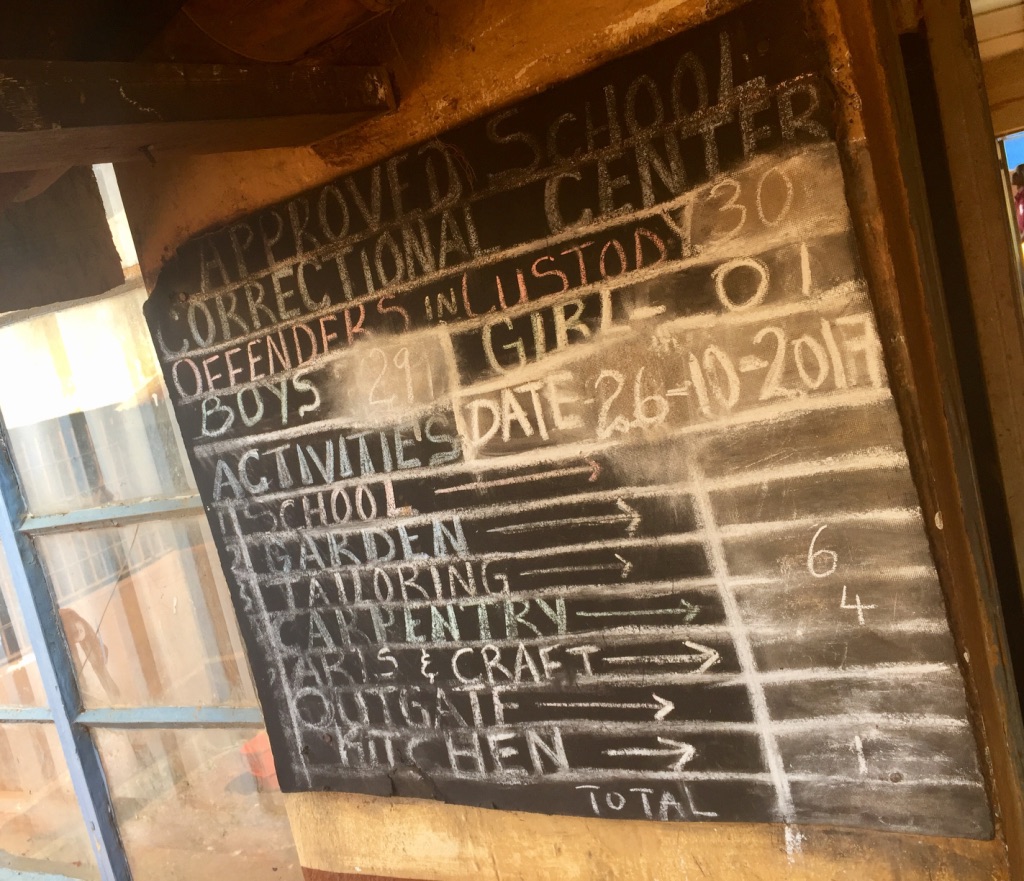 APPROVED SCHOOL
CORRECTIONAL CENTER
OFFENDERS IN CUSTODY 30
BOYS 29 GIRL - 01
ACTIVITIES DATE - 26-10-2017
SCHOOL →
GARDEN →
TAILORING → 6
CARPENTRY → 4
ARTS & CRAFT →
OUTGATE →
KITCHEN → 1
TOTAL